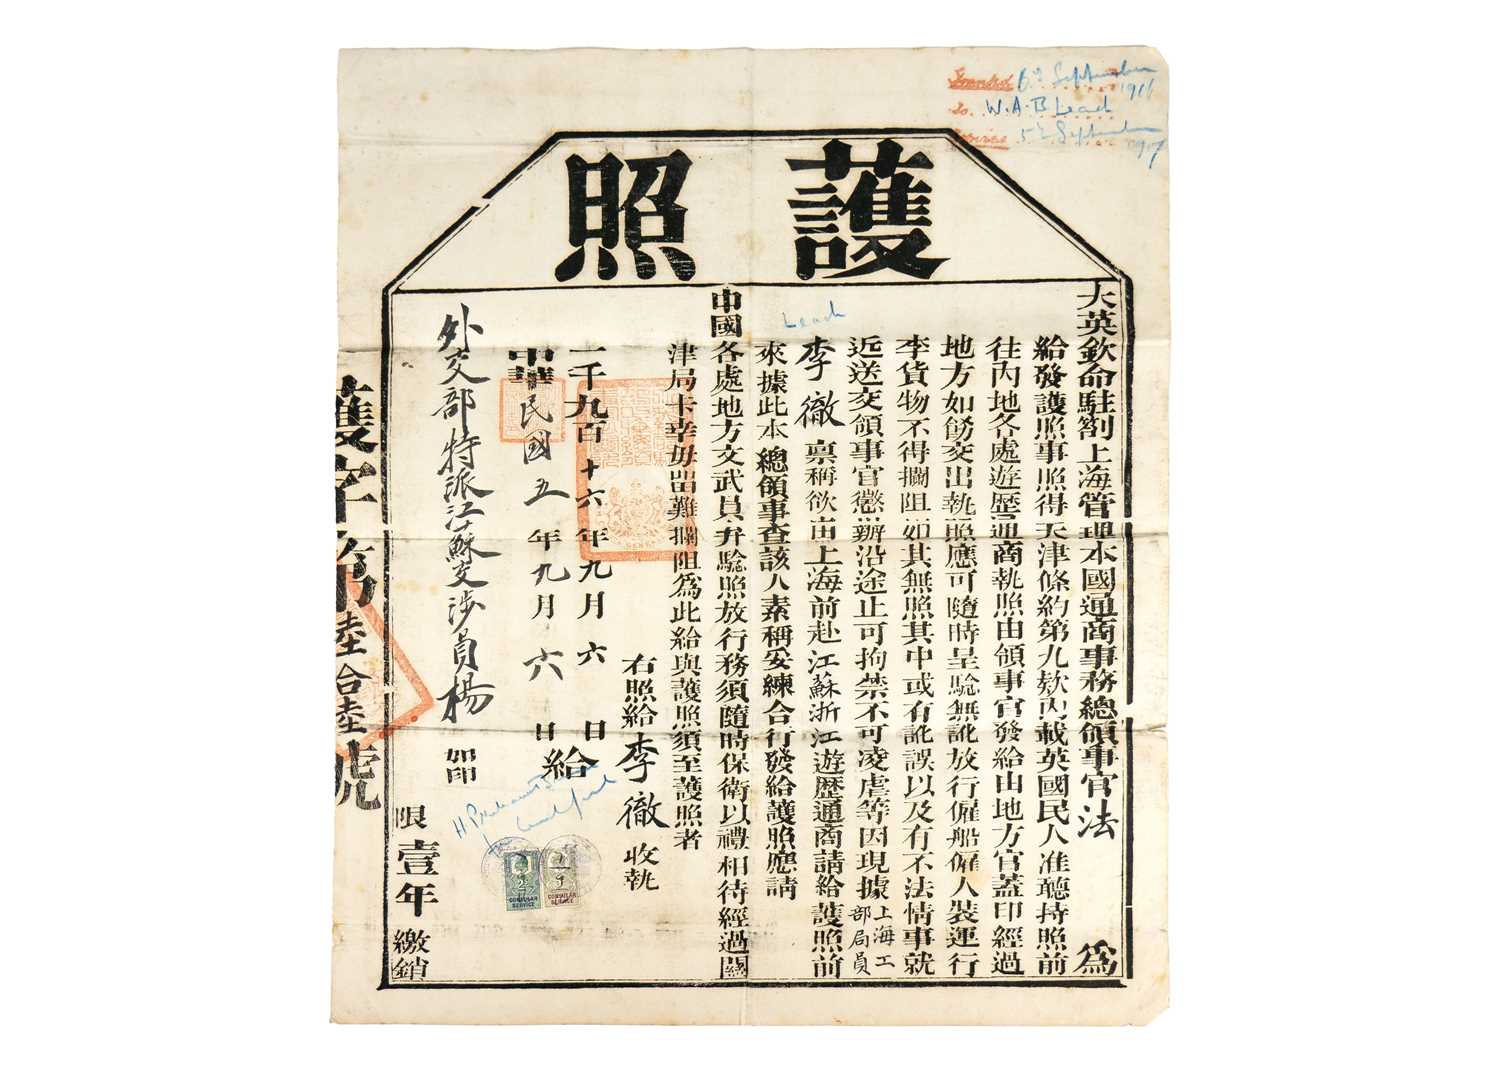 6th September 1916
to W.A.B Leach
5th September 1917
護照
大英欽命駐劄上海管理本國通商事務總領事官法 為
給發護照事照得天津條約第九欵內載英國民人准聽持照前
往內地各處遊歷通商執照由領事官發給由地方官蓋印經過
地方如飭交出執照應可隨時呈驗無訛放行僱船僱人裝運行
李貨物不得攔阻如其無照其中或有訛誤以及有不法情事就
近送交領事官懲辦沿途止可拘禁不可凌虐等因現據上海工部局員
Leach
李徹稟稱欲由上海前赴江蘇浙江遊歷通商請給護照前
來據此本總領事查該人素稱妥練合行發給護照應請
中國各處地方文武員弁驗照放行務須隨時保衛以禮相待經過關
津局卡幸毋留難攔阻為此給與護照須至護照者
右照給李徹收執
一千九百十六年九月六日
中華民國五年九月六日給
外交部特派江蘇交涉員楊 如印
限壹年繳銷
護字第陸拾陸號
CONSULAR SERVICE
CONSULAR SERVICE